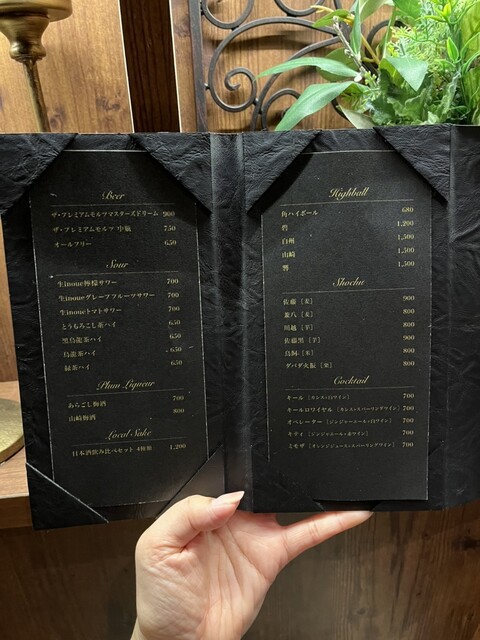 Beer
ザ・プレミアムモルツマスターズドリーム 900
ザ・プレミアムモルツ 中瓶 750
オールフリー 650
Sour
生inoue檸檬サワー 700
生inoueグレープフルーツサワー 700
生inoueトマトサワー 700
とうもろこし茶ハイ 650
黒烏龍茶ハイ 650
烏龍茶ハイ 650
緑茶ハイ 650
Plum Liqueur
あらごし梅酒 700
山崎梅酒 800
Local Sake
日本酒飲み比べセット 4種類 1,200
Highball
角ハイボール 680
碧 1,200
白州 1,500
山崎 1,500
響 1,500
Shochu
佐藤 [麦] 900
兼八 [麦] 800
川越 [芋] 800
佐藤黒 [芋] 900
鳥飼 [米] 800
ダバダ火振 [栗] 800
Cocktail
キール [カシス+白ワイン] 700
キールロワイヤル [カシス+スパーリングワイン] 700
オペレーター [ジンジャーエール+白ワイン] 700
キティ [ジンジャーエール+赤ワイン] 700
ミモザ [オレンジジュース+スパーリングワイン] 700